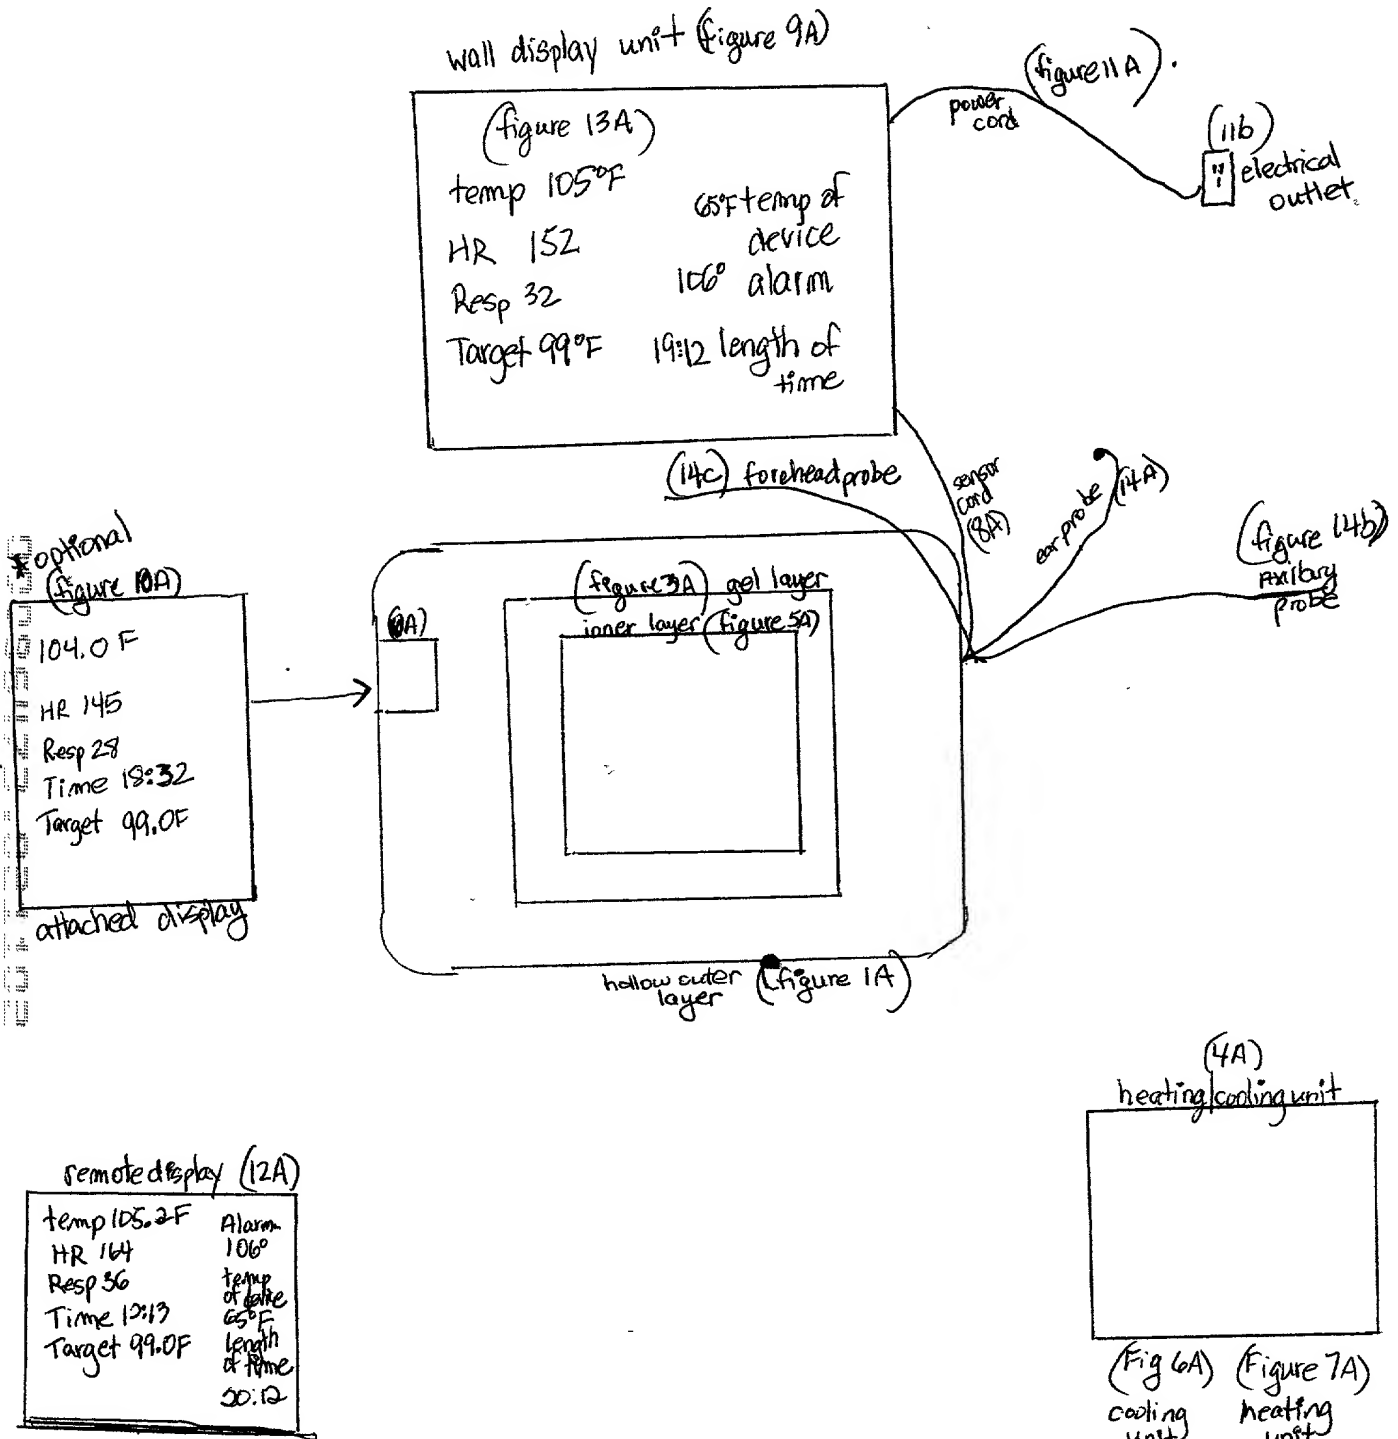 wall display unit (figure 9A)
(figure 11A).
power
cord
(11b)
electrical
outlet.
(figure 13A)
temp 105°F
HR 152
Resp 32
Target 99°F
65°F temp of
device
106° alarm
19:12 length of
time
(14c) forehead probe
sensor
cord
(8A)
ear probe
(14A)
(figure 14b)
Axillary
probe
* optional
(figure 10A)
104.0 F
HR 145
Resp 28
Time 18:32
Target 99.0F
attached display
(figure 3A) gel layer
inner layer (figure 5A)
hollow outer
layer
(figure 1A)
(4A)
heating/cooling unit
(Fig 6A)
cooling
unit
(Figure 7A)
heating
unit
remote display (12A)
temp 105.2F
HR 164
Resp 36
Time 12:13
Target 99.0F
Alarm
106°
temp
of
65°F
length
of time
20:12